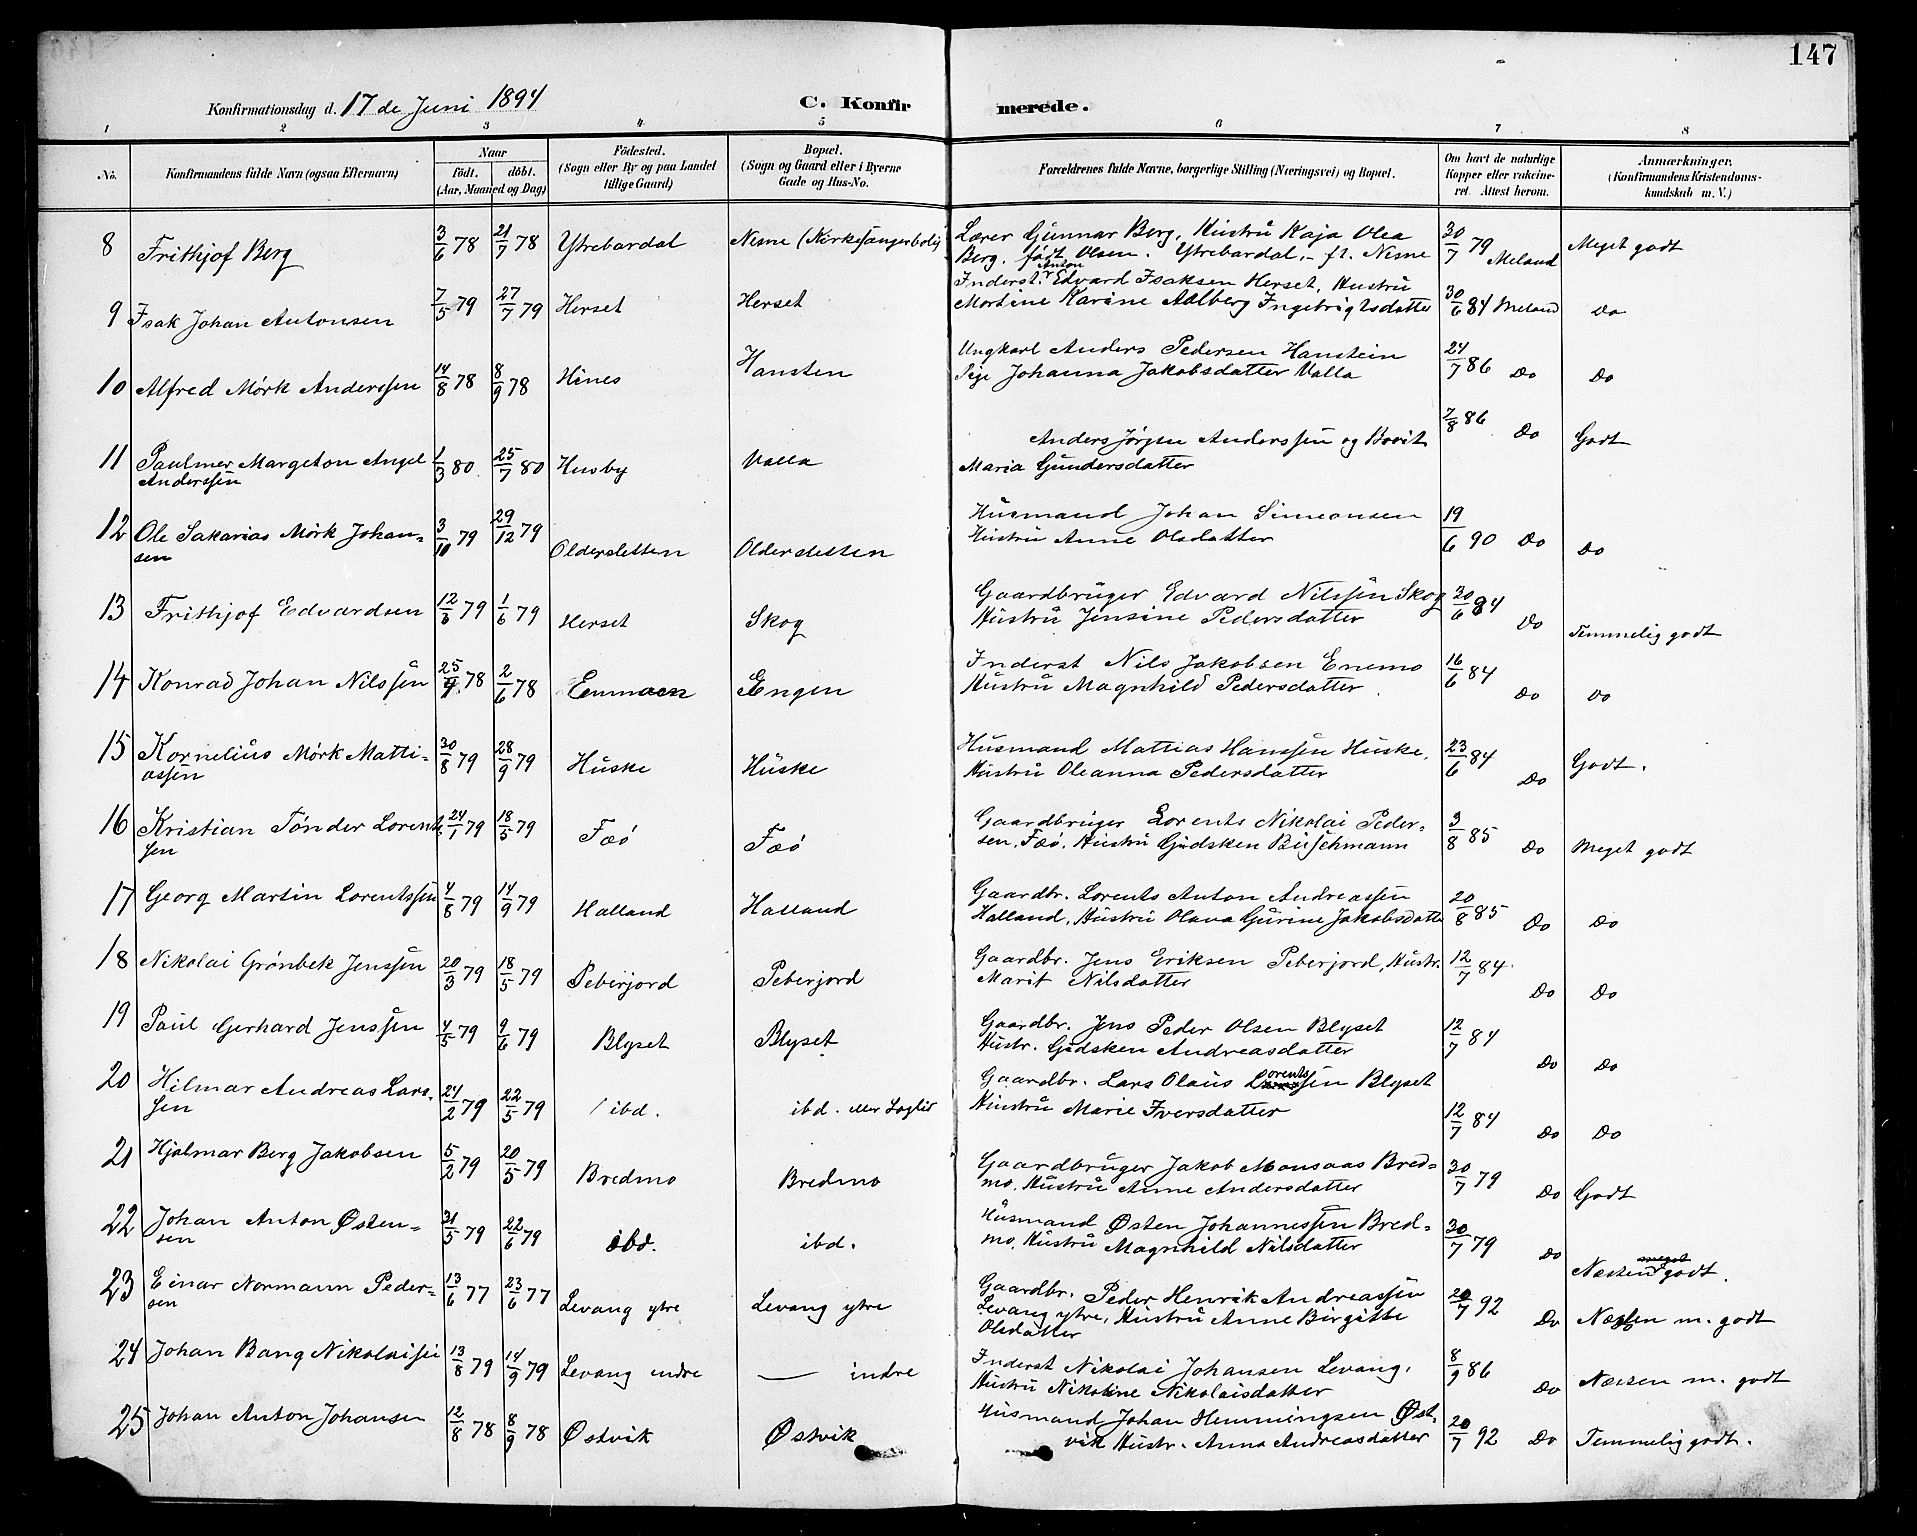 147
Konfirmationsdag d. 17 de Juni 1894 C. Konfirmerede.
1 2 3 4 5 6 7 8
No. Konfirmandens fulde Navn (ogsaa Efternavn) Naar Födt. döbt. (Aar, Maaned og Dag) Födested. (Sogn eller By og paa Landet tillige Gaard) Bopæl. (Sogn og Gaard eller i Byerne Gade og Hus-No. Forældrenes fulde Navne, borgerlige Stilling (Næringsvei) og Bopæl. Om havt de naturlige Kopper eller vaccineret. Attest herom. Anmærkninger. (Konfirmandens Kristendomskundskab m. V.)
8 Frithjof Berg 3/6 78 21/7 78 Ytrebardal Nesne (Kirkesangerbolig) Lærer Gunnar Berg, Hustru Kaja Olea 30/7 79 Meland Meget godt
Berg, født Olsen. Ytrebardal, - fr. Nesne
9 Isak Johan Antonsen 7/5 79 27/7 79 Herset Herset Inderst Anton Edvard Isaksen Herset, Hustru 30/6 84 Meland Do
Mortine Karine Aalberg Ingebrigtsdatter
10 Alfred Mörk Anderssen 14/8 78 8/9 78 Hines Hansten Ungkarl Anders Pedersen Hanstein 24/7 86 Do Do
Pige Johanna Jakobsdatter Valla
11 Paulmer Margeton Angel 1/3 80 25/7 80 Husby Valla Anders Jørgen Anderssen og Borit 7/8 86 Do Godt
Anderssen Maria Gundersdatter
12 Ole Sakarias Mörk Johan= 3/10 79 29/12 79 Oldersletten Oldersletten Husmand Johan Simeonsen 19/6 90 Do Do
sen Hustru Anne Olsdatter
13 Frithjof Edvardsen 12/3 79 1/6 79 Herset Skog Gaardbruger Edvard Nilssen Skog 30/6 84 Do Temmelig godt
Hustru Jensine Pedersdatter
14 Konrad Johan Nilssen 25/4 78 2/6 78 Engen Inderst Nils Jakobsen Enemo 16/6 84 Do Do
Hustru Magnhild Pedersdatter
15 Kornelius Mörk Matti= 30/8 79 28/9 79 Huske Huske Husmand Mattias Hanssen Huske, 23/6 84 Do Godt.
assen Hustru Oleanna Pedersdatter
16 Kristian Tönder Lorent 24/1 79 18/5 79 Fæö Fæö Gaardbruger Lorents Nikolai Peder= 3/8 85 Do Meget godt
sen sen, Fæö, Hustru Gidsken Buschmann
17 Georg Martin Lorentssen 4/8 79 14/9 79 Halland Halland Gaardbr. Lorents Anton Andreassen 20/8 85 Do Do
Halland, Hustru Olava Gurine Jakobsdatte
18 Nikolai Grönbek Jenssen 20/3 79 18/5 79 Peberjord Peberjord Gaardbr. Jens Eriksen Peberjord, Hustr. 12/7 84. Do Do
Marit Nilsdatter
19 Paul Gerhard Jenssen 4/5 79 9/6 79 Blyset Blyset Gaardbr. Jens Peder Olsen Blyset 12/7 84 Do Do
Hustr. Gidsken Andreasdatter
20 Hilmar Andreas Lars= 24/2 79 22/5 79 ibd. ibd. Gaardbr. Lars Olaus Lorentssen Blyset 12/7 84 Do Do
sen Hustru Marie Iversdatter
21 Hjalmar Berg Jakobsen 5/2 79 20/5 79 Bredmo Bredmo Gaardbruger Jakob Monsaas Bred= 30/7 79 Do Godt
mo, Hustru Anne Andersdatter
22 Johan Anton Østen= 31/5 79 22/6 79 ibd. ibd. Husmand Østen Johannessen Bred= 30/7 79 Do Næsten meget godt.
sen mo, Hustru Magnhild Nilsdatter
23 Einar Normann Peder= 13/6 77 23/6 77 Levang ytre Levang ytre Gaardbr. Peder Henrik Andreassen 20/7 92 Do Næsten m. godt
sen Levang ytre, Hustru Anne Birgitte
Olsdatter
24 Johan Bang Nikolaisen 13/8 79 14/9 79 Levang indre — indre Inderst Nikolai Johansen Levang, 8/9 86 Do Næsten m. godt
Hustru Nikoline Nikolaisdatter
25 Johan Anton Johansen 12/8 78 8/9 78 Østvik Østvik Husmand Johan Hemmingsen Øst= 20/7 92 Do Temmelig godt.
vik Hustr. Anna Andreasdatter